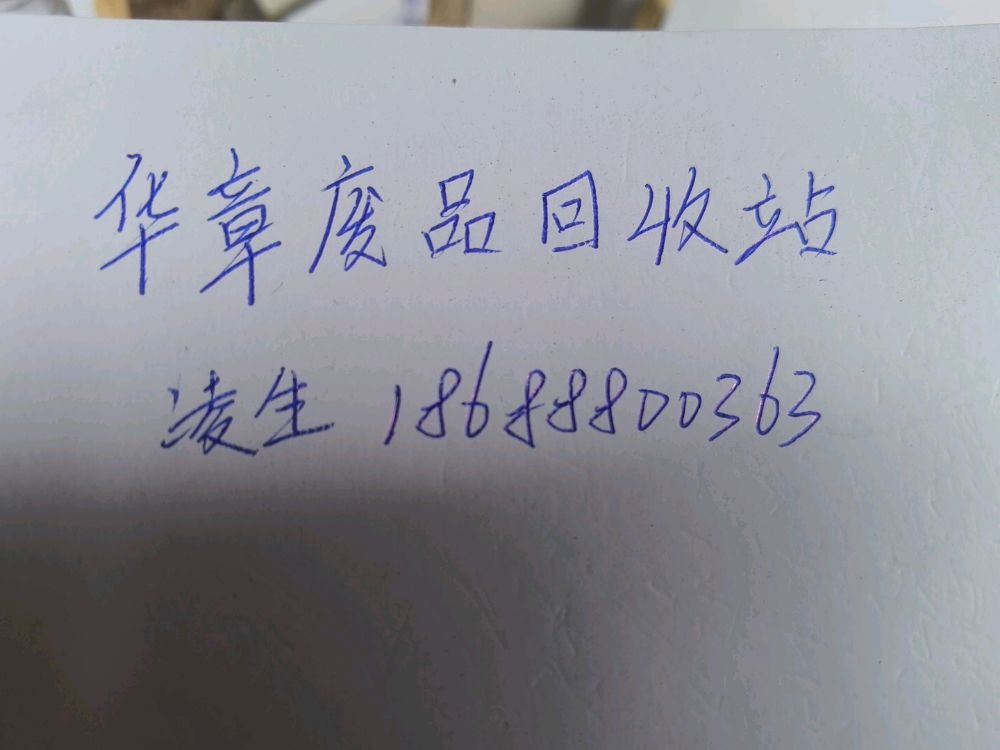 华章废品回收站
凌生 18688800363